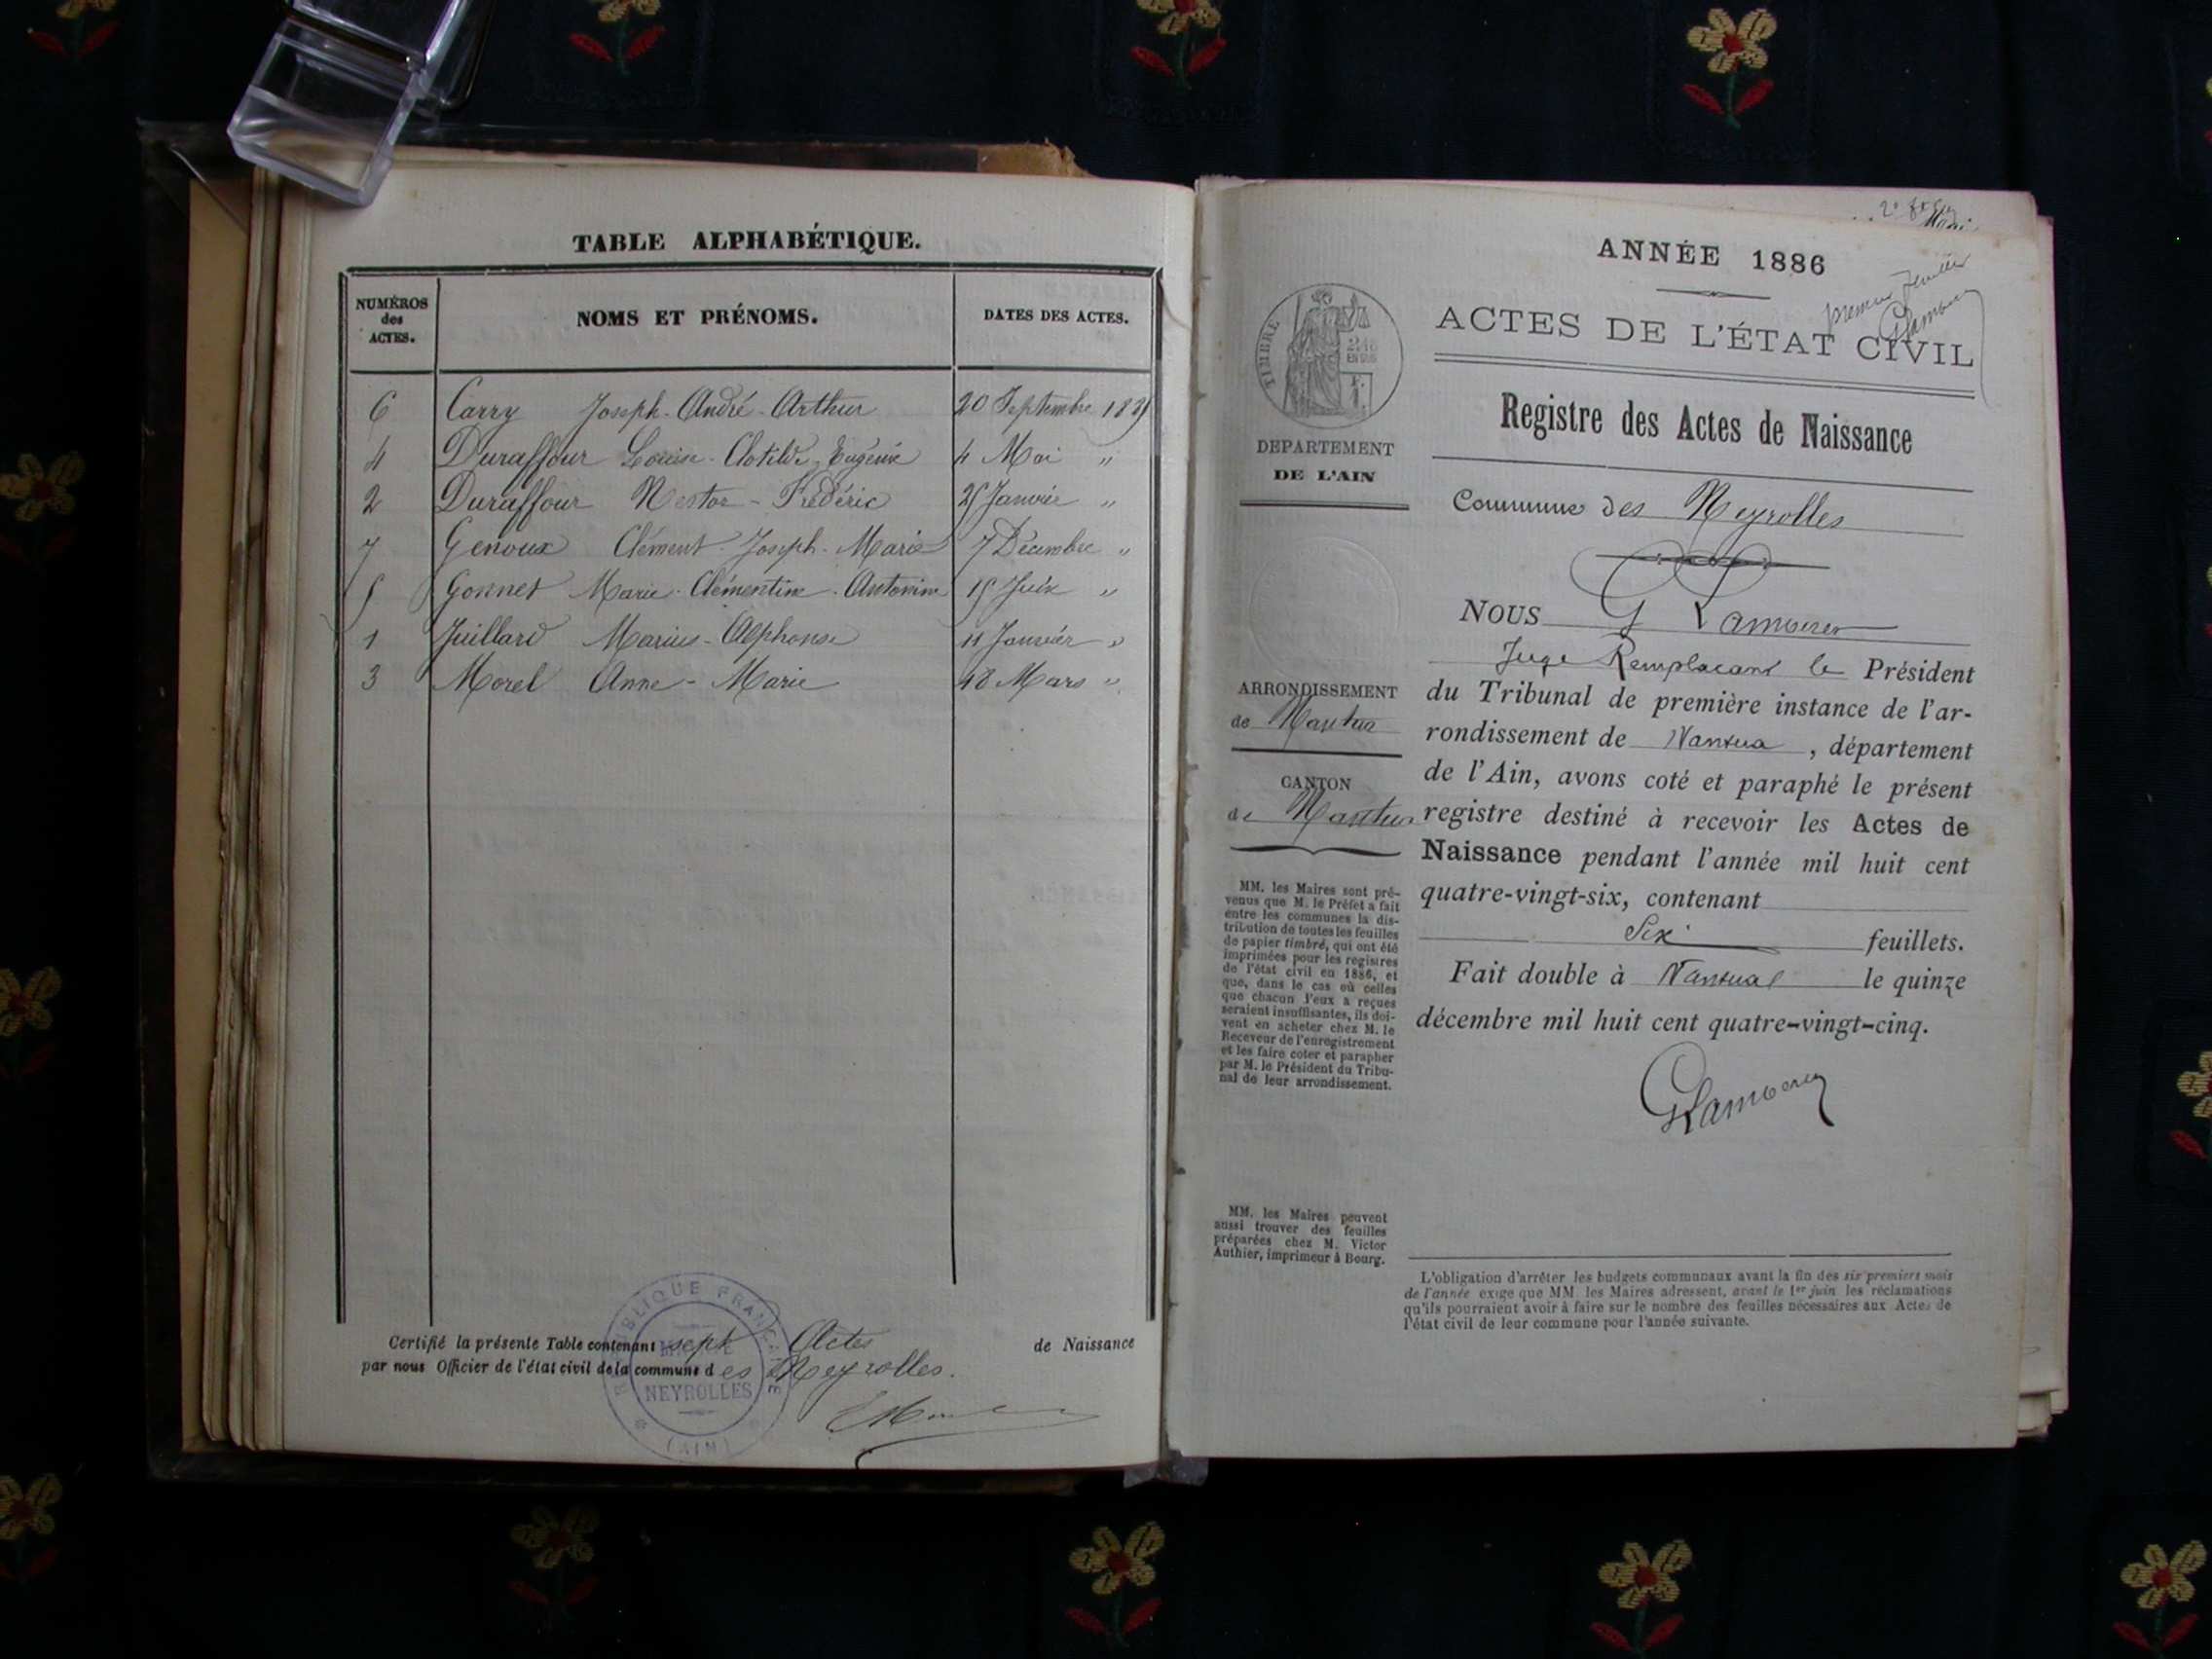 TABLE ALPHABÉTIQUE.
NUMÉROS des ACTES.
NOMS ET PRÉNOMS.
DATES DES ACTES.
6 Carry Joseph-André-Arthur 20 Septembre
4 Duraffour Louise-Clotilde-Eugénie 4 Mai "
2 Duraffour Nestor-Frédéric 25 Janvier "
7 Genoux Clément-Joseph-Marie 7 Décembre "
5 Gonnet Marie-Clémentine-Antonine 15 Juin "
1 Juillard Marius-Alphonse 11 Janvier "
3 Morel Anne-Marie 18 Mars "
Certifié la présente Table contenant sept Actes de Naissance
par nous Officier de l'état civil de la commune des Neyrolles.
RÉPUBLIQUE FRANÇAISE
MAIRIE
NEYROLLES
(AIN)
premier feuillet
ANNÉE 1886
ACTES DE L'ÉTAT CIVIL
Registre des Actes de Naissance
Commune des Neyrolles
TIMBRE
EN SUS
DEPARTEMENT
DE L'AIN
ARRONDISSEMENT
de Nantua
CANTON
de Nantua
MM. les Maires sont pré-
venus que M. le Préfet a fait
entre les communes la dis-
tribution de toutes les feuilles
de papier timbré, qui ont été
imprimées pour les registres
de l'état civil en 1886, et
que, dans le cas où celles
que chacun d'eux a reçues
seraient insuffisantes, ils doi-
vent en acheter chez M. le
Receveur de l'enregistrement
et les faire coter et parapher
par M. le Président du Tribu-
nal de leur arrondissement.
MM. les Maires peuvent
aussi trouver des feuilles
préparées chez M. Victor
Authier, imprimeur à Bourg.
NOUS G
Juge Remplaçant le Président
du Tribunal de première instance de l'ar-
rondissement de Nantua, département
de l'Ain, avons coté et paraphé le présent
registre destiné à recevoir les Actes de
Naissance pendant l'année mil huit cent
quatre-vingt-six, contenant
Six feuillets.
Fait double à Nantua le quinze
décembre mil huit cent quatre-vingt-cinq.
L'obligation d'arrêter les budgets communaux avant la fin des six premiers mois
de l'année exige que MM. les Maires adressent, avant le 1er juin les réclamations
qu'ils pourraient avoir à faire sur le nombre des feuilles nécessaires aux Actes de
l'état civil de leur commune pour l'année suivante.